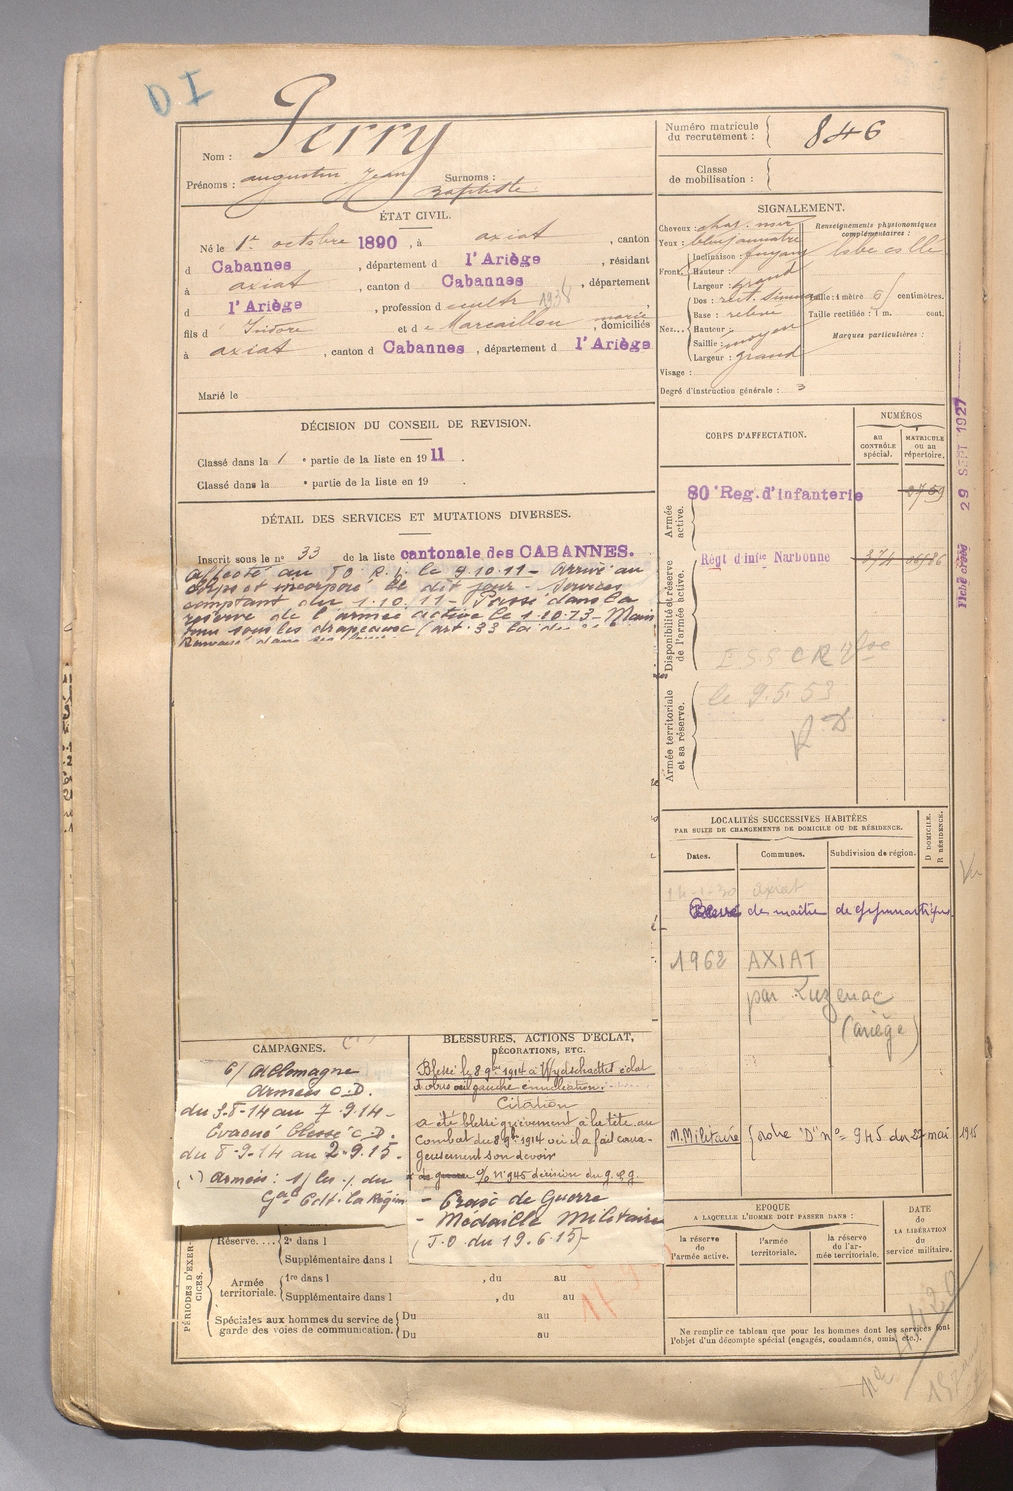 D I
Nom : Perry
Prénoms : augustin Jean Surnoms :
Baptiste
ÉTAT CIVIL.
Né le 1er octobre 1890, à axiat, canton
d Cabannes, département d l'Ariège, résidant
à axiat, canton d Cabannes, département
d l'Ariège, profession d cultr 1938,
fils d Isidore et d e Marcaillou marie, domiciliés
à axiat, canton d Cabannes, département d l'Ariège
Marié le
DÉCISION DU CONSEIL DE REVISION.
Classé dans la 1 e partie de la liste en 1911.
Classé dans la e partie de la liste en 19 .
DÉTAIL DES SERVICES ET MUTATIONS DIVERSES.
Inscrit sous le n° 33 de la liste cantonale des CABANNES.
Affecté au 80 R.I. le 9.10.11 – Arrivé au
corps et incorporé le dit jour – Services
comptant du 1.10.11 – Passé dans la
réserve de l'armée active le 1.10.13 – Main
tenu sous les drapeaux (art. 33 loi du
CAMPAGNES.
c/ Allemagne
Armées C.D.
du 3-8-14 au 7-9-14 –
Évacué blessé C.D.
du 8-9-14 au 2-9-15 –
BLESSURES, ACTIONS D'ÉCLAT,
DÉCORATIONS, ETC.
Blessé le 8 9bre 1914 à Wydschaettet éclat
d'obus œil gauche énucléation.
Citation
a été blessé grièvement à la tête au
combat du 8 9bre 1914 où il a fait coura-
geusement son devoir
o/ n° 945 décision du g.q.g.
– Croix de Guerre
– Médaille Militaire
(J.O du 19.6.15) –
PÉRIODES D'EXERCICES.
Réserve.... 2e dans l
Supplémentaire dans l
Armée territoriale. 1re dans l , du au
Supplémentaire dans l , du au
Spéciales aux hommes du service de garde des voies de communication. Du au
Du au
Numéro matricule du recrutement : 846
Classe de mobilisation :
SIGNALEMENT.
Cheveux : chat. noir
Yeux : bleu jaunatre
Front. Inclinaison : fuyant
Hauteur : grand
Largeur : grand
Nez... Dos : rect. sinueux
Base : relevé
Hauteur :
Saillie : moyen
Largeur : grand
Visage :
Degré d'instruction générale : 3
Renseignements physionomiques complémentaires :
lobe collé
Taille : 1 mètre 61 centimètres.
Taille rectifiée : 1 m. cent.
Marques particulières :
CORPS D'AFFECTATION.
NUMÉROS
AU CONTRÔLE spécial.
MATRICULE ou au répertoire.
Armée active.
80e Reg. d'infanterie
Disponibilité et réserve de l'armée active.
Régt d'infie Narbonne 374
Armée territoriale et sa réserve.
le 9.5.53
R D
Fiche créée 29 SEPT 1927
LOCALITÉS SUCCESSIVES HABITÉES
PAR SUITE DE CHANGEMENTS DE DOMICILE OU DE RÉSIDENCE.
Dates. Communes. Subdivision de région. D DOMICILE. R RÉSIDENCE.
14-1-30 axiat
Brevet de maître de gymnastique
Vu
1962 AXIAT
par Luzenac
(ariège)
M. Militaire (ordre "D" n° 945 du 27 mai 1915
EPOQUE
A LAQUELLE L'HOMME DOIT PASSER DANS :
la réserve de l'armée active.
l'armée territoriale.
la réserve de l'armée territoriale.
DATE
de
LA LIBÉRATION
du
service militaire.
Ne remplir ce tableau que pour les hommes dont les services font
l'objet d'un décompte spécial (engagés, condamnés, omis, etc.).